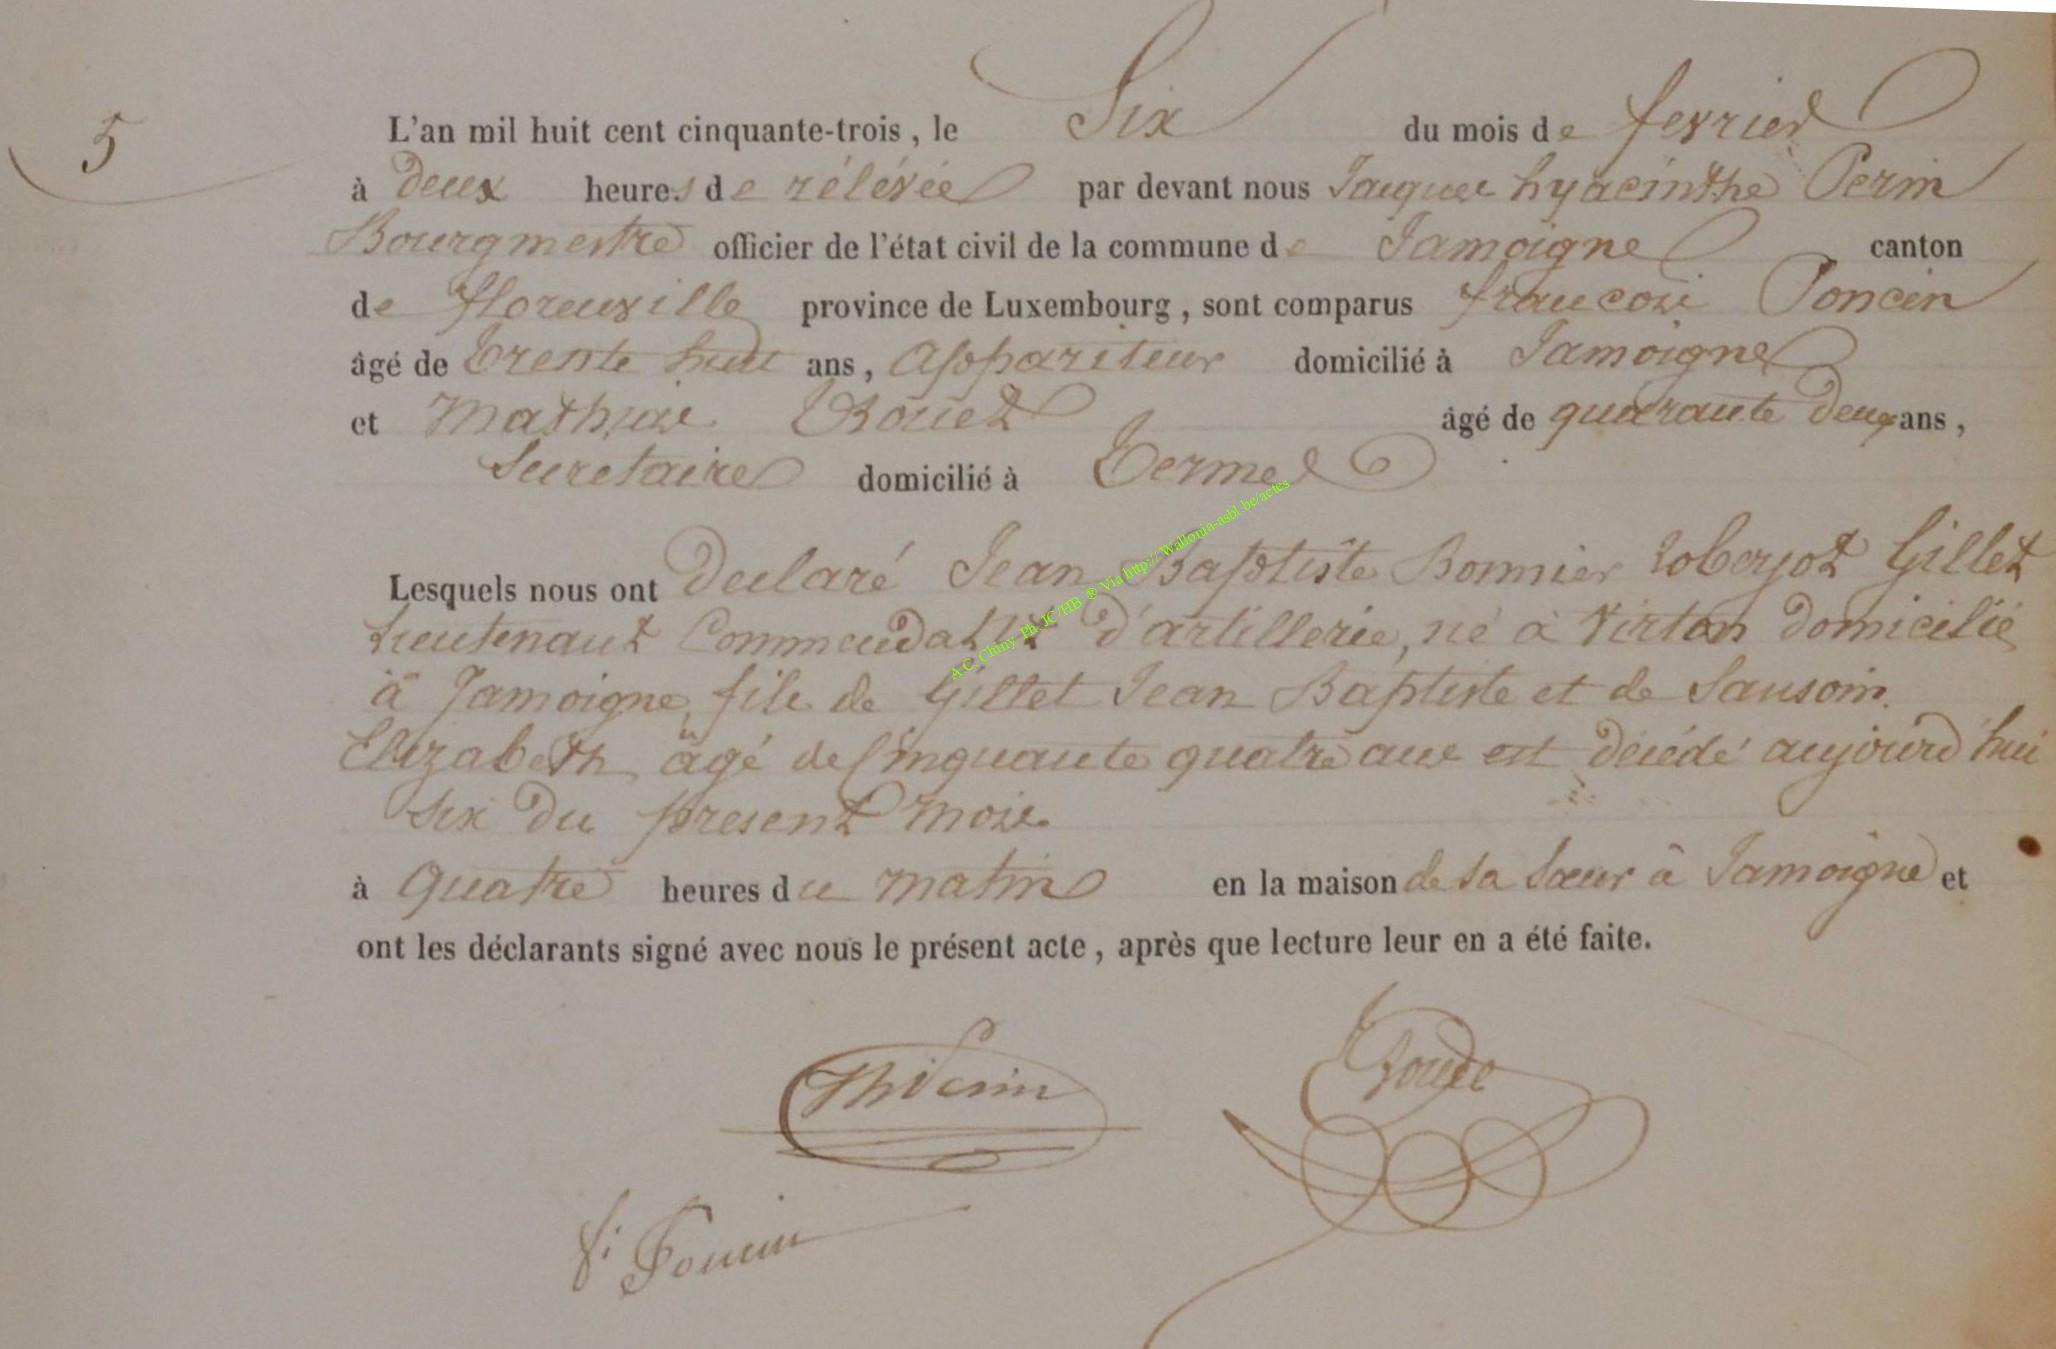 5
L'an mil huit cent cinquante-trois, le Six du mois de fevrier
à deux heures de rélévée par devant nous Jacques hyacinthe Perin
Bourgmestre officier de l'état civil de la commune de Jamoigne canton
de florenville province de Luxembourg, sont comparus francois Poncin
âgé de trente huit ans, appariteur domicilié à Jamoigne
et Mathias âgé de quarante deux ans,
Secretaire domicilié à Termes
Lesquels nous ont Declaré Jean Baptiste Bonnier roberjot Gillet
Lieutenant d'artillerie, né à Virton domicilié
à Jamoigne, fils de Gillet Jean Baptiste et de Sausoin
Elizabeth âgé de Cinquante quatre ans est décédé aujourd'hui
six du present mois.
à quatre heures du matin en la maison de sa soeur à Jamoigne et
ont les déclarants signé avec nous le présent acte, après que lecture leur en a été faite.
JhPerin
f: Poncin
A.C. Chiny Ph. JC/HB ® Via http://Wallonia-asbl.be/actes